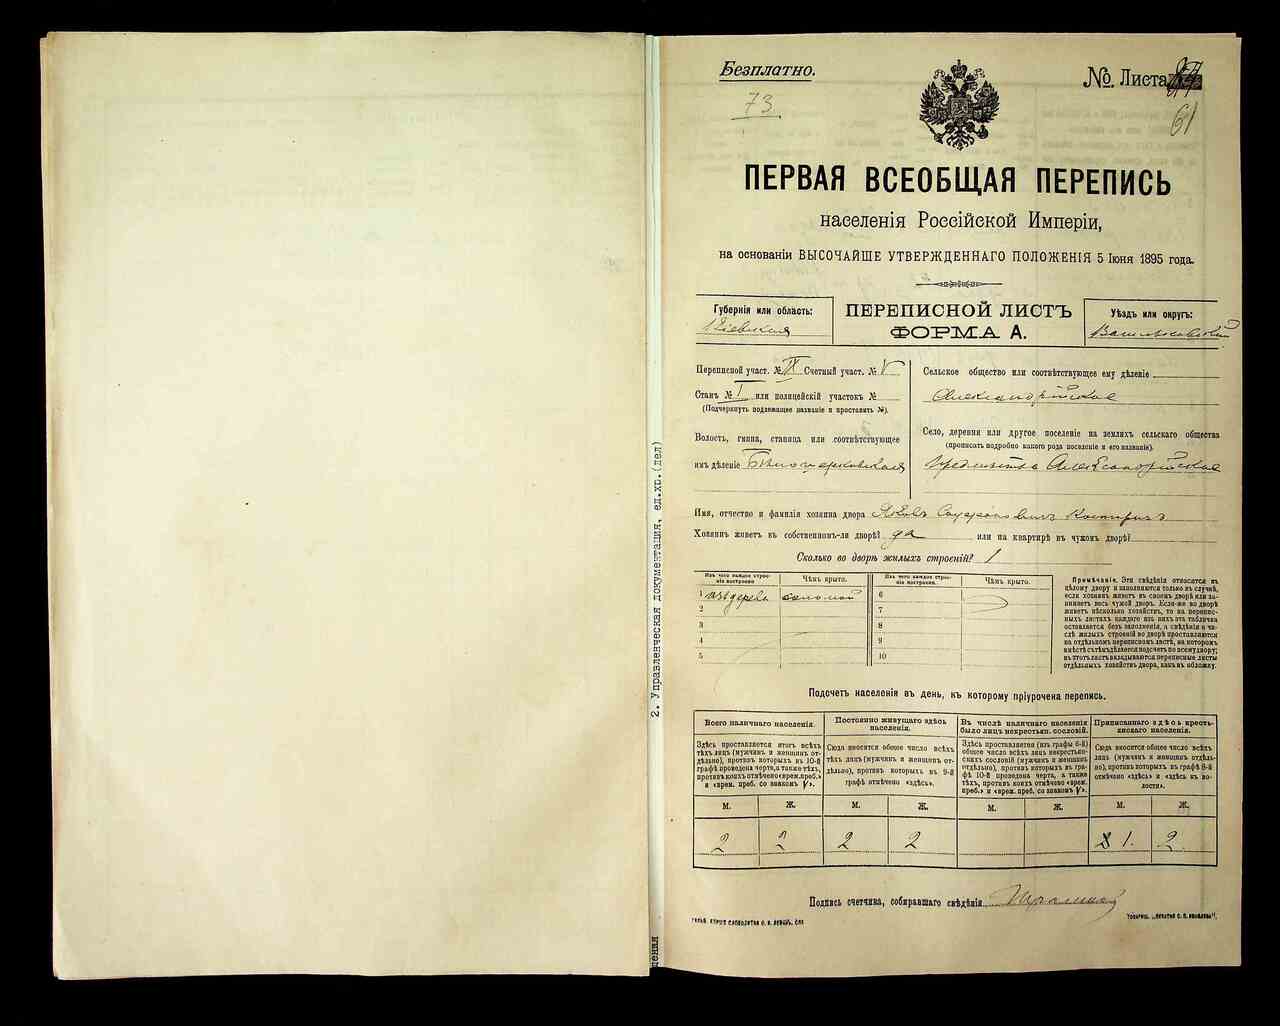 Безплатно.
№. Листа
73.
61
ПЕРВАЯ ВСЕОБЩАЯ ПЕРЕПИСЬ
населенія Россійской Имперіи,
на основаніи ВЫСОЧАЙШЕ УТВЕРЖДЕННАГО ПОЛОЖЕНІЯ 5 Іюня 1895 года.
Губернія или область:
Кіевская
ПЕРЕПИСНОЙ ЛИСТЪ
ФОРМА А.
Уѣздъ или округъ:
Васильковскій
Переписной участ. № IX Счетный участ. № V
Станъ № I или полицейскій участокъ №
(Подчеркнуть подлежащее названіе и проставить №).
Волость, гмина, станица или соотвѣтствующее
имъ дѣленіе Бѣлоцерковская
Сельское общество или соотвѣтствующее ему дѣленіе
Александрійское
Село, деревня или другое поселеніе на земляхъ сельскаго общества
(прописать подробно какого рода поселеніе и его названіе).
предмѣстье Александрійское
Имя, отчество и фамилія хозяина двора Яковъ
Хозяинъ живетъ въ собственномъ-ли дворѣ? да или на квартирѣ въ чужомъ дворѣ?
Сколько во дворѣ жилыхъ строеній? 1
Изъ чего каждое строеніе построено. Чѣмъ крыто. Изъ чего каждое строеніе построено. Чѣмъ крыто.
1 изъ дерева соломой 6
2 7
3 8
4 9
5 10
Примѣчаніе. Эти свѣдѣнія относятся къ
цѣлому двору и заполняются только въ случаѣ,
если хозяинъ живетъ въ своемъ дворѣ или занимаетъ
весь чужой дворъ. Если-же во дворѣ
живетъ нѣсколько хозяйствъ, то на переписныхъ
листахъ каждаго изъ нихъ эта табличка
оставляется безъ заполненія, а свѣдѣнія о числѣ
жилыхъ строеній во дворѣ проставляются
на отдѣльномъ переписномъ листѣ, на которомъ
вмѣстѣ съ тѣмъ дѣлается подсчетъ по всему двору;
въ этотъ листъ вкладываются переписные листы
отдѣльныхъ хозяйствъ двора, какъ въ обложку.
Подсчетъ населенія въ день, къ которому пріурочена перепись.
Всего наличнаго населенія.
Здѣсь проставляется итогъ всѣхъ
тѣхъ лицъ (мужчинъ и женщинъ отдѣльно),
противъ которыхъ въ 10-й
графѣ проведена черта, а также тѣхъ,
противъ коихъ отмѣчено «врем. преб.»
и «врем. преб. со знакомъ V».
Постоянно живущаго здѣсь
населенія.
Сюда вносится общее число всѣхъ
тѣхъ лицъ (мужчинъ и женщинъ отдѣльно),
противъ которыхъ въ 9-й
графѣ отмѣчено «здѣсь».
Въ числѣ наличнаго населенія
было лицъ некрестьян. сословій.
Здѣсь проставляется (изъ графы 6-й)
общее число всѣхъ лицъ некрестьянскихъ
сословій (мужчинъ и женщинъ
отдѣльно), противъ которыхъ въ графѣ
10-й проведена черта, а также
тѣхъ, противъ коихъ отмѣчено «врем.
преб.» и «врем. преб. со знакомъ V».
Приписаннаго здѣсь крестьянскаго
населенія.
Сюда вносится общее число всѣхъ
лицъ (мужчинъ и женщинъ отдѣльно),
противъ которыхъ въ графѣ 8-й
отмѣчено «здѣсь» и «здѣсь въ волости».
М. Ж. М. Ж. М. Ж. М. Ж.
2 2 2 2 1. 2
Подпись счетчика, собиравшаго свѣдѣнія
2. Управленческая документация, ед.хр.(дел)